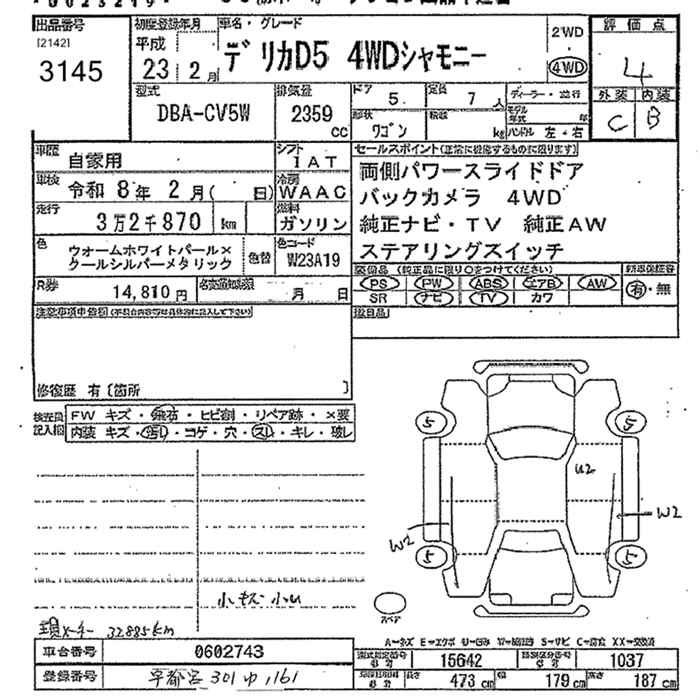 出品番号 初度登録年月 車名・グレード 評価点
[2142] 平成 2WD
3145 23 2月 デリカD5 4WDシャモニー 4WD 4
型式 排気量 ドア 定員 ディーラー・並行 外装 内装
DBA-CV5W 2359 cc 5 7人 C B
形状 ワゴン kg ハンドル 左・右
車歴 自家用 シフト IAT セールスポイント(正常に機能するものに限ります)
車検 令和 8年 2月( 日) 冷房 WAAC 両側パワースライドドア
バックカメラ 4WD
走行 3万2千870 km 燃料 ガソリン 純正ナビ・TV 純正AW
ステアリングスイッチ
色 ウォームホワイトパール× 色替 色コード
クールシルバーメタリック W23A19
装備品 (純正品に限り○をつけてください) 新車保証書
R券 14,810円 月 日 PS PW ABS エアB AW 有・無
SR ナビ TV カワ
注意事項申告欄
修復歴 有〔箇所 〕
検査員 FW キズ・飛石・ヒビ割・リペア跡・×要
記入欄 内装 キズ・汚れ・コゲ・穴・スレ・キレ・破レ
5 5
U2
W2 W2
5 5
小キズ 小U
スペア
現メーター 32885km
A=キズ E=エクボ U=凹み S=サビ C=腐食 XX=交換済
車台番号 0602743 15642 1037
登録番号 宇都宮 301 ゆ 161 長さ 473cm 幅 179cm 高さ 187cm